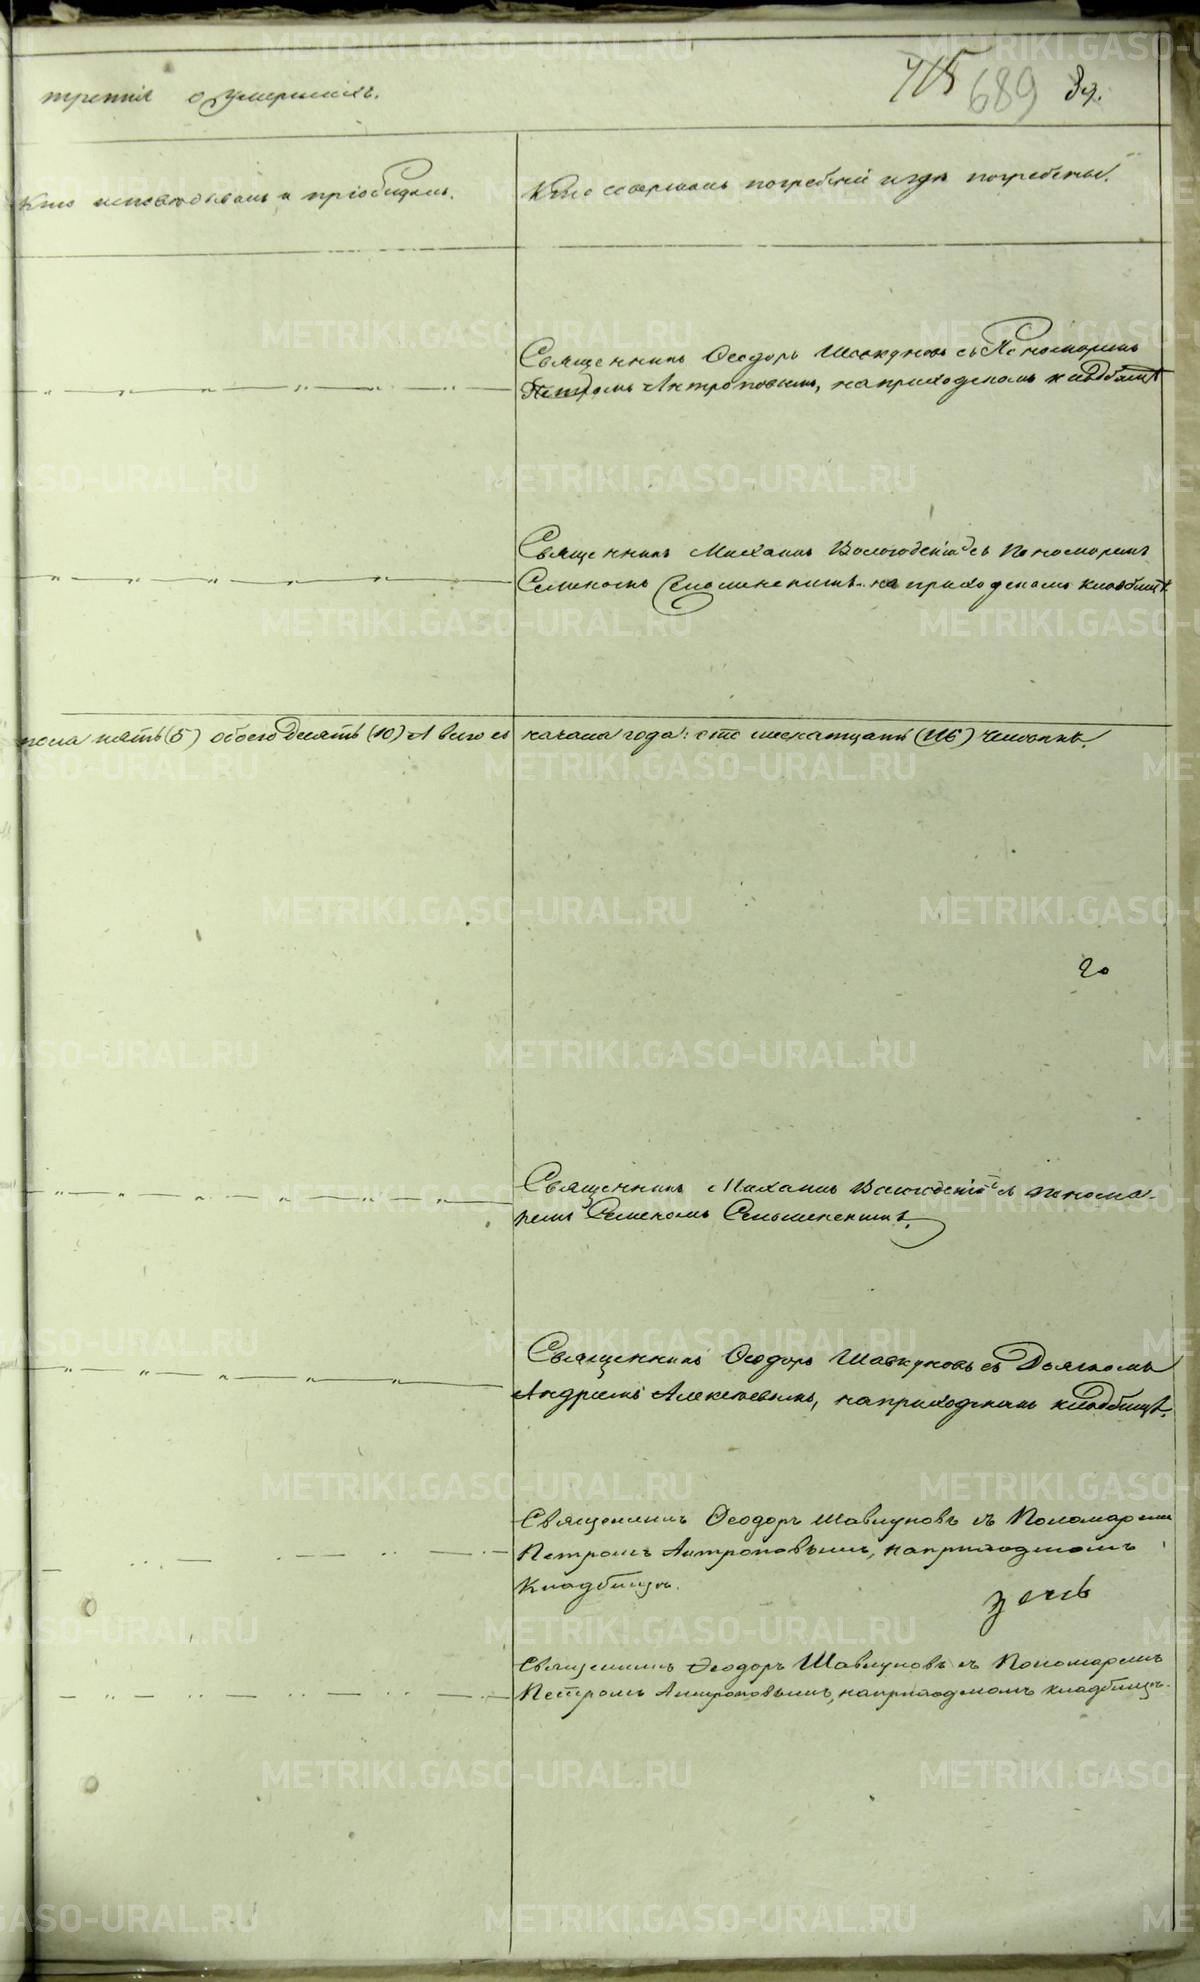 третія о умершихъ.
715 689 89.
Кто исповѣдывалъ и пріобщалъ.
Кто совершалъ погребеніе и гдѣ погребены.
Священникъ Ѳеодоръ Шавкуновъ съ Пономаремъ
Петромъ Антроповымъ, на приходскомъ кладбищѣ
Священникъ Михаилъ Вологодскій съ Пономаремъ
Семеномъ на приходскомъ кладбищѣ
пола пять (5) обоего десять (10) А всего съ начала года: сто шеснатцать (116) человѣкъ.
Священникъ Михаилъ Вологодскій съ понома-
ремъ Семеномъ
Священникъ Ѳеодоръ Шавкуновъ съ Дьячкомъ
Андреемъ Алексѣевымъ, на приходскомъ кладбищѣ.
Священникъ Ѳеодоръ Шавкуновъ съ Пономаремъ
Петромъ Антроповымъ, на приходскомъ
Кладбищѣ.
Священникъ Ѳеодоръ Шавкуновъ съ Пономаремъ
Петромъ Антроповымъ, на приходскомъ кладбищѣ.
METRIKI.GASO-URAL.RU